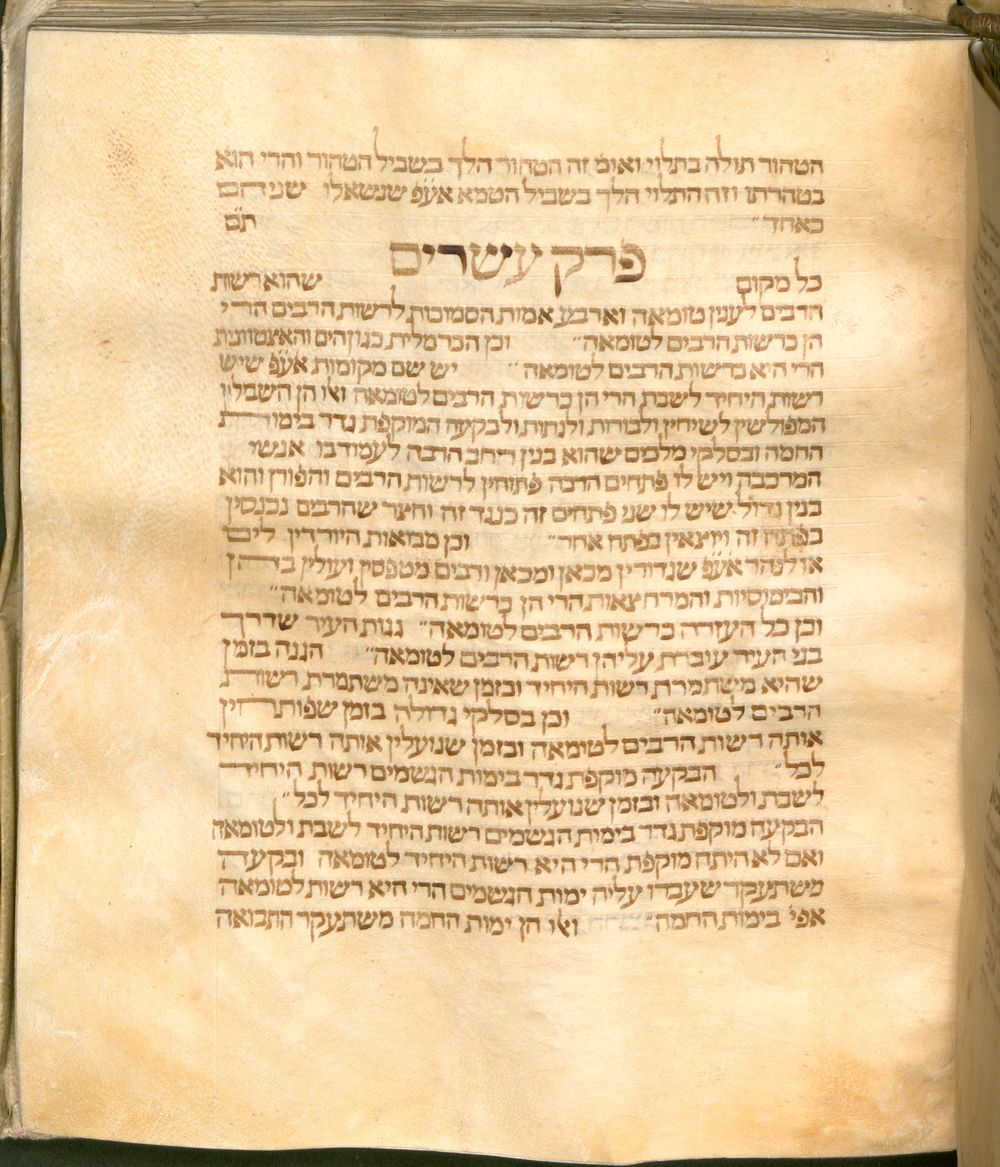 הטהור תולה בתלוי ואומ׳ זה הטהור הלך בשביל הטהור והרי הוא
בטהרתו וזה התלוי הלך בשביל הטמא אע״פ שנשאלו שניהם
כאחד״ ת״ם
פרק עשרים
כל מקום שהוא רשות
הרבים לענין טומאה וארבע אמות הסמוכות לרשות הרבים הרי
הן כרשות הרבים לטומאה״ וכן הכרמלית כגון הים והאצטוונית
הרי היא כרשות הרבים לטומאה״ יש שם מקומות אע״פ שיש
רשות היחיד לשבת הרי הן כרשות הרבים לטומאה ואלו הן השבילין
המפולשין לשיחין ולבורות ולגתות ולבקעה המוקפת גדר בימות
החמה ובסלקי מלכים שהוא בנין רחב הרבה לעמוד בו אנשי
המרכבה ויש לו פתחים הרבה פתוחין לרשות הרבים והפורן והוא
בנין גדול שיש לו שני פתחים זה כנגד זה וחצר שהרבים נכנסין
בפתח זה ויוצאין בפתח אחר״ וכן מבואות היורדין לים
או לנהר אע״פ שגדורין מכאן ומכאן ורבים מטפסין ועולין בהן
והבימוסיות והמרחצאות הרי הן כרשות הרבים לטומאה״
וכן כל העזרה כרשות הרבים לטומאה״ גגות העיר שדרך
בני העיר עוברת עליהן רשות הרבים לטומאה״ הגנה בזמן
שהיא משתמרת רשות היחיד ובזמן שאינה משתמרת רשות
הרבים לטומאה״ וכן בסלקי גדולה בזמן שפותחין
אותה רשות הרבים לטומאה ובזמן שנועלין אותה רשות היחיד
לכל״ הבקעה מוקפת גדר בימות הגשמים רשות היחיד
לשבת ולטומאה ובזמן שנועלין אותה רשות היחיד לכל״
הבקעה מוקפת גדר בימות הגשמים רשות היחיד לשבת ולטומאה
ואם לא היתה מוקפת הרי היא רשות היחיד לטומאה ובקעה
משתעקר שעברו עליה ימות הגשמים הרי היא רשות לטומאה
אפי׳ בימות החמה״ ואלו הן ימות החמה משתעקר התבואה